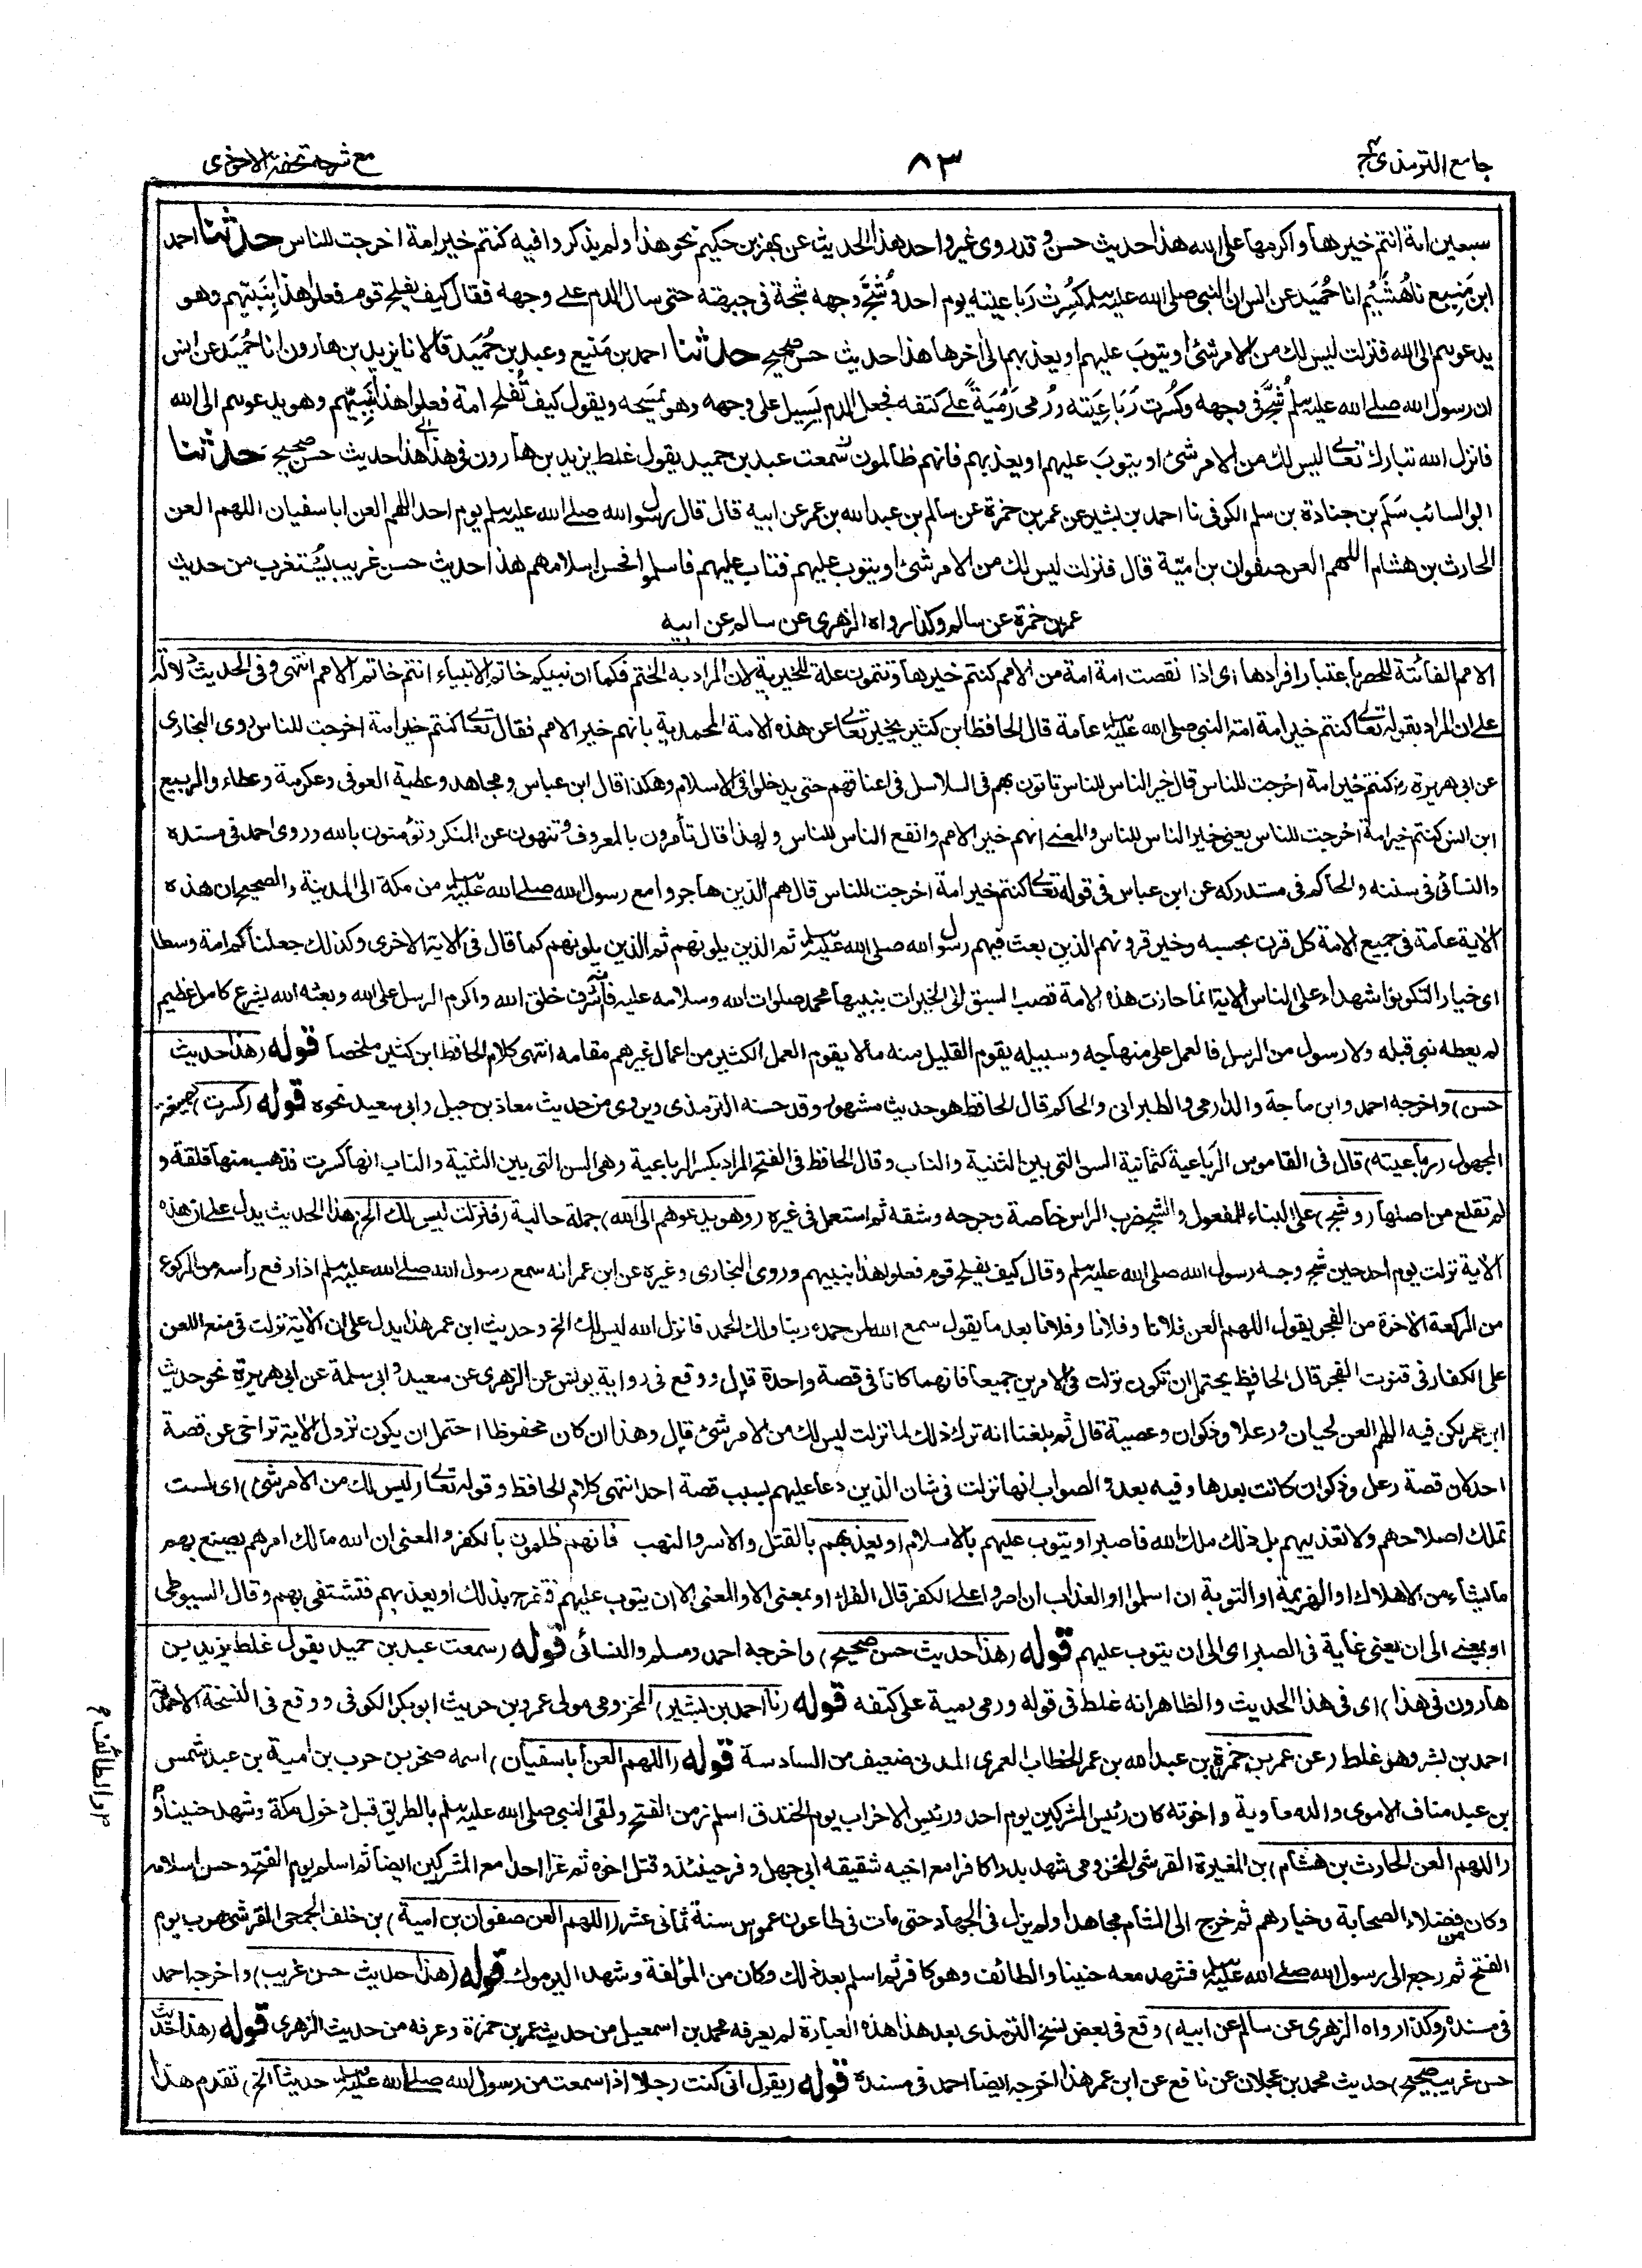 جامع الترمذي ج٤
٨٣
مع شرحه تحفة الاحوذى
سبعين امة انتم خيرها واكرمها على الله هذا حديث حسن وقد روى غير واحد هذا الحديث عن بهز بن حكيم نحو هذا ولم يذكروا فيه كنتم خير امة اخرجت للناس حدثنا احمد
ابن مَنِيع نا هُشَيْم انا حُمَيد عن انس ان النبى صلى الله عليه وسلم كُسِرَت رَباعيته يوم احد وشُجَّ وجهه شجة فى جبهته حتى سال الدم على وجهه فقال كيف يفلح قوم فعلوا هذا بِنَبِيّهم وهو
يدعوهم الى الله فنزلت ليس لك من الامر شئ او يتوبَ عليهم او يعذبهم الى اخرها هذا حديث حسن صحيح حدثنا احمد بن مَنيع وعبد بن حُمَيد قالا نا يزيد بن هارون انا حُمَيد عن انس
ان رسول الله صلى الله عليه وسلم شُجَّ فى وجهه وكُسرت رَبَاعِيَته ورُمى رَمْيَةً على كتفه فجعل الدم يَسِيل على وجهه وهو يمسَحه ويقول كيف تُفلح امة فعلوا هذا بِنَبِيّهم وهو يدعوهم الى الله
فانزل الله تبارك وتعالى ليس لك من الامر شئ او يتوبَ عليهم او يعذبهم فانهم ظالمون سمعت عبد بن حميد يقول غلط يزيد بن هارون فى هذا هذا حديث حسن صحيح حدثنا
ابو السائب سَلْم بن جنادة بن سلم الكوفى نا احمد بن بشير عن عمر بن حمزة عن سالم بن عبد الله بن عمر عن ابيه قال قال رسول الله صلى الله عليه وسلم يوم احد اللهم العن ابا سفيان اللهم العن
الحارث بن هشام اللهم العن صفوان بن اميّة قال فنزلت ليس لك من الامر شئ او يتوب عليهم فتاب عليهم فاسلموا فحسن اسلامهم هذا حديث حسن غريب يُستغرب من حديث
عمر بن حمزة عن سالم وكذا رواه الزهرى عن سالم عن ابيه
الامم الفائتة للحصر باعتبار افرادها اى اذا نقصت امة امة من الامم كنتم خيرها وتتمون علة للخيرية لان المراد به الختم فكما ان نبيكم خاتم الانبياء انتم خاتم الامم انتهى وفى الحديث دلالة
على ان المراد بقوله تعالى كنتم خير امة امة النبى صلى الله عليه وسلم عامة قال الحافظ ابن كثير يخبر تعالى عن هذه الامة المحمدية بانهم خير الامم فقال تعالى كنتم خير امة اخرجت للناس روى البخارى
عن ابى هريرة رض كنتم خير امة اخرجت للناس قال خير الناس للناس تاتون بهم فى السلاسل فى اعناقهم حتى يدخلوا فى الاسلام وهكذا قال ابن عباس ومجاهد وعطية العوفى وعكرمة وعطاء والربيع
ابن انس كنتم خير امة اخرجت للناس يعنى خير الناس للناس والمعنى انهم خير الامم وانفع الناس للناس ولهذا قال تأمرون بالمعروف وتنهون عن المنكر وتؤمنون بالله وروى احمد فى مسنده
والنسائى فى سننه والحاكم فى مستدركه عن ابن عباس فى قوله تعالى كنتم خير امة اخرجت للناس قال هم الذين هاجروا مع رسول الله صلى الله عليه وسلم من مكة الى المدينة والصحيح ان هذه
الاية عامة فى جميع الامة كل قرن بحسبه وخير قرونهم الذين بعث فيهم رسول الله صلى الله عليه وسلم ثم الذين يلونهم ثم الذين يلونهم كما قال فى الاية الاخرى وكذلك جعلناكم امة وسطا
اى خيارا لتكونوا شهداء على الناس الاية انما حازت هذه الامة قصب السبق الى الخيرات بنبيها محمد صلوات الله وسلامه عليه فانه اشرف خلق الله واكرم الرسل على الله وبعثه الله بشرع كامل عظيم
لم يعطه نبى قبله ولا رسول من الرسل فالعمل على منهاجه وسبيله يقوم القليل منه ما لا يقوم العمل الكثير من اعمال غيرهم مقامه انتهى كلام الحافظ ابن كثير ملخصا قوله (هذا حديث
حسن) واخرجه احمد وابن ماجة والدارمى والطبرانى والحاكم قال الحافظ هو حديث مشهور وقد حسنه الترمذى ويروى من حديث معاذ بن جبل وابى سعيد نحوه قوله (كسرت) بصيغة
المجهول (رباعيته) قال فى القاموس الرَباعية كثمانية السن التى بين الثنية والناب وقال الحافظ فى الفتح المراد بكسر الرباعية وهى السن التى بين الثنية والناب انها كسرت فذهب منها فلقة و
لم تقلع من اصلها (وشج) على البناء للمفعول والشج ضرب الراس خاصة وجرحه وشقه ثم استعمل فى غيره (وهو يدعوهم الى الله) جملة حالية (فنزلت ليس لك الخ) هذا الحديث يدل على ان هذه
الاية نزلت يوم احد حين شج وجه رسول الله صلى الله عليه وسلم وقال كيف يفلح قوم فعلوا هذا بنبيهم وروى البخارى وغيره عن ابن عمر انه سمع رسول الله صلى الله عليه وسلم اذا رفع رأسه من الركوع
من الركعة الاخرة من الفجر يقول اللهم العن فلانا وفلانا وفلانا بعد ما يقول سمع الله لمن حمده ربنا ولك الحمد فانزل الله ليس لك الخ وحديث ابن عمر هذا يدل على ان الاية نزلت فى منع اللعن
على الكفار فى قنوت الفجر قال الحافظ يحتمل ان تكون نزلت فى الامرين جميعا فانهما كانا فى قصة واحدة قال ووقع فى رواية يونس عن الزهرى عن سعيد وابى سلمة عن ابى هريرة نحو حديث
ابن عمر لكن فيه اللهم العن لحيان ورعلا وذكوان وعصية قال ثم بلغنا انه ترك ذلك لما نزلت ليس لك من الامر شئ قال وهذا ان كان محفوظا احتمل ان يكون نزول الاية تراخى عن قصة
احد لان قصة رعل وذكوان كانت بعدها وفيه بعد والصواب انها نزلت فى شان الذين دعا عليهم بسبب قصة احد انتهى كلام الحافظ وقوله تعالى (ليس لك من الامر شئ) اى لست
تملك اصلاحهم ولا تعذيبهم بل ذلك ملك الله فاصبر او يتوب عليهم بالاسلام او يعذبهم بالقتل والاسر والنهب فانهم ظلمون بالكفر والمعنى ان الله مالك امرهم يصنع بهم
ما يشاء من الاهلاك او الهزيمة او التوبة ان اسلموا او العذاب ان اصروا على الكفر قال الفراء او بمعنى الا والمعنى الا ان يتوب عليهم فتفرح بذلك او يعذبهم فتشتفى بهم وقال السيوطى
او بمعنى الى ان يعنى غاية فى الصبر اى الى ان يتوب عليهم قوله (هذا حديث حسن صحيح) واخرجه احمد ومسلم والنسائى قوله (سمعت عبد بن حميد يقول غلط يزيد بن
هارون فى هذا) اى فى هذا الحديث والظاهر انه غلط فى قوله ورمى رمية على كتفه قوله (نا احمد بن بشير) المخزومى مولى عمرو بن حريث ابو بكر الكوفى ووقع فى النسخة الاحمدية
احمد بن بشر وهو غلط (عن عمر بن حمزة) بن عبد الله بن عمر الخطاب العمرى المدنى ضعيف من السادسة قوله (اللهم العن ابا سفيان) اسمه صخر بن حرب بن امية بن عبد شمس
بن عبد مناف الاموى والد معاوية واخوته كان رئيس المشركين يوم احد ورئيس الاحزاب يوم الخندق اسلم زمن الفتح ولقى النبى صلى الله عليه وسلم بالطريق قبل دخول مكة وشهد حنينا و
(اللهم العن الحارث بن هشام) بن المغيرة القرشى المخزومى شهد بدرا كافرا مع اخيه شقيقه ابى جهل وفر حينئذ وقتل اخوه ثم غزا احدا مع المشركين ايضا ثم اسلم يوم الفتح وحسن اسلامه
وكان من فضلاء الصحابة وخيارهم ثم خرج الى الشام مجاهدا ولم يزل فى الجهاد حتى مات فى طاعون عمواس سنة ثمانى عشر (اللهم العن صفوان بن امية) بن خلف الجمحى القرشى هرب يوم
الفتح ثم رجع الى رسول الله صلى الله عليه وسلم فشهد معه حنينا والطائف وهو كافر ثم اسلم بعد ذلك وكان من المؤلفة وشهد اليرموك قوله (هذا حديث حسن غريب) واخرجه احمد
فى مسنده (وكذا رواه الزهرى عن سالم عن ابيه) وقع فى بعض نسخ الترمذى بعد هذا هذه العبارة لم يعرفه محمد بن اسمعيل من حديث عمر بن حمزة وعرفه من حديث الزهرى قوله (هذا حديث
حسن غريب صحيح) حديث محمد بن عجلان عن نافع عن ابن عمر هذا اخرجه ايضا احمد فى مسنده قوله (يقول انى كنت رجلا اذا سمعت من رسول الله صلى الله عليه وسلم حديثا الخ) تقدم هذا
الطائف